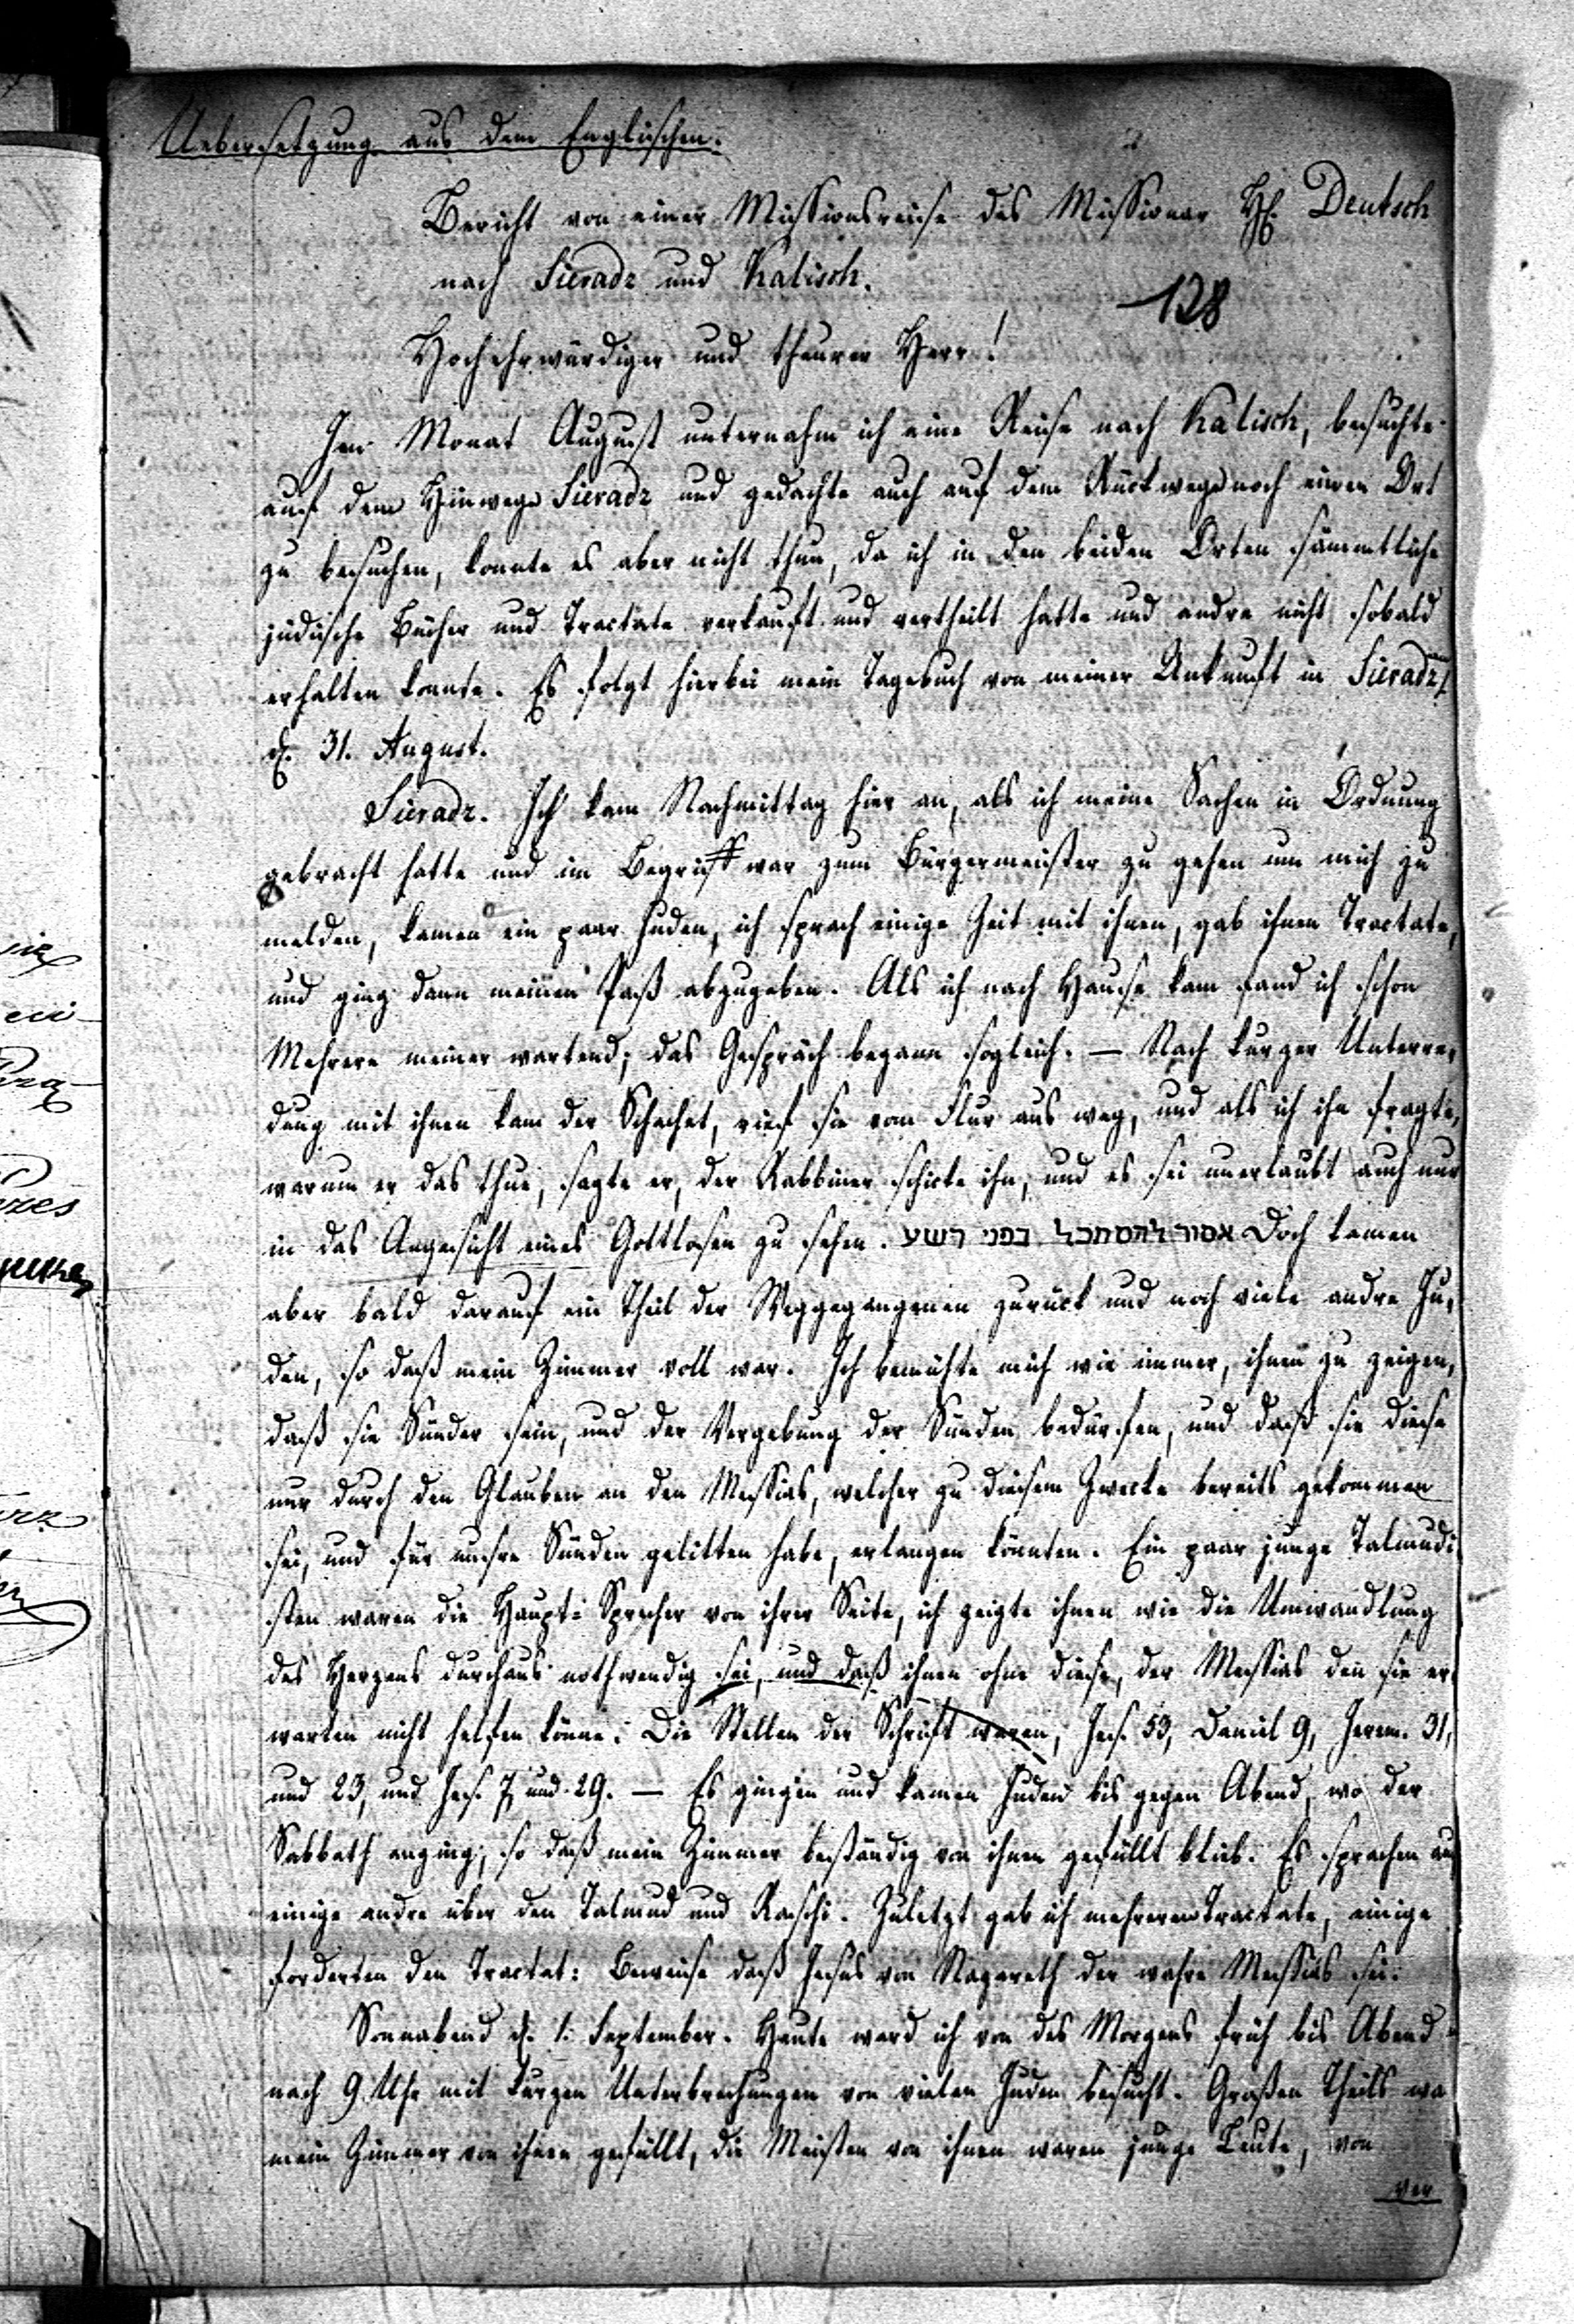 Uebersetzung aus dem Englischen.
Bericht von einer Missionsreise des Missionar H. Deutsch
nach Sieradz und Kalisch.
128
Hochehrwürdiger und theurer Herr!
Im Monat August unternahm ich eine Reise nach Kalisch, besuchte
auf dem Hinwege Sieradz und gedachte auch auf dem Rückwege noch einen Ort
zu besuchen, konnte es aber nicht thun, da ich in den beiden Orten sämmtliche
jüdische Bücher und Tractate verkauft und vertheilt hatte und andre nicht sobald
erhalten konnte. Es folgt hierbei mein Tagebuch von meiner Ankunft in Sieradz
d. 31. August.
Sieradz. Ich kam Nachmittag hier an, als ich meine Sachen in Ordnung
gebracht hatte und im Begriff war zum Bürgermeister zu gehen um mich zu
melden, kamen ein paar Juden, ich sprach einige Zeit mit ihnen, gab ihnen Tractate,
und ging dann meinen Paß abzugeben. Als ich nach Hause kam fand ich schon
Mehrere meiner wartend; das Gespräch begann sogleich. — Nach kurzer Unterre-
dung mit ihnen kam der Schochet, rief sie vom Flur aus weg, und als ich ihn fragte,
warum er das thue, sagte er, der Rabbiner schicke ihn, und es sei unerlaubt auch nur
in das Angesicht eines Gottlosen zu sehen. אסור להסתכל בפני רשע Doch kamen
aber bald darauf ein Theil der Weggegangenen zurück und noch viele andre Ju-
den, so daß mein Zimmer voll war. Ich bemühte mich wie immer, ihnen zu zeigen,
daß sie Sünder sein, und der Vergebung der Sünden bedürfen, und daß sie diese
nur durch den Glauben an den Messias, welcher zu diesem Zwecke bereits gekommen
sei, und für unsre Sünden gelitten habe, erlangen könnten. Ein paar junge Talmudi
sten waren die Haupt-Sprecher von ihrer Seite, ich zeigte ihnen wie die Umwandlung
des Herzens durchaus nothwendig sei, und daß ihnen ohne diese, der Messias den sie er-
warten nicht helfen könne. Die Stellen der Schrift waren, Jes. 53, Daniel 9, Jerem. 31,
und 23, und Jes. 7 und 29. — Es gingen und kamen Juden bis gegen Abend, wo der
Sabbath anging, so daß mein Zimmer beständig von ihnen gefüllt blieb. Es sprachen
einige andre über den Talmud und Raschi. Zuletzt gab ich mehreren Tractate, einige
forderten den Tractat: Beweise daß Jesus von Nazareth der wahre Messias sei.
Sonnabend d. 1. September. Heute ward ich von des Morgens früh bis Abend
nach 9 Uhr mit kurzen Unterbrechungen von vielen Juden besucht. Großen Theils wa
mein Zimmer von ihnen gefüllt, die Meisten von ihnen waren junge Leute, von